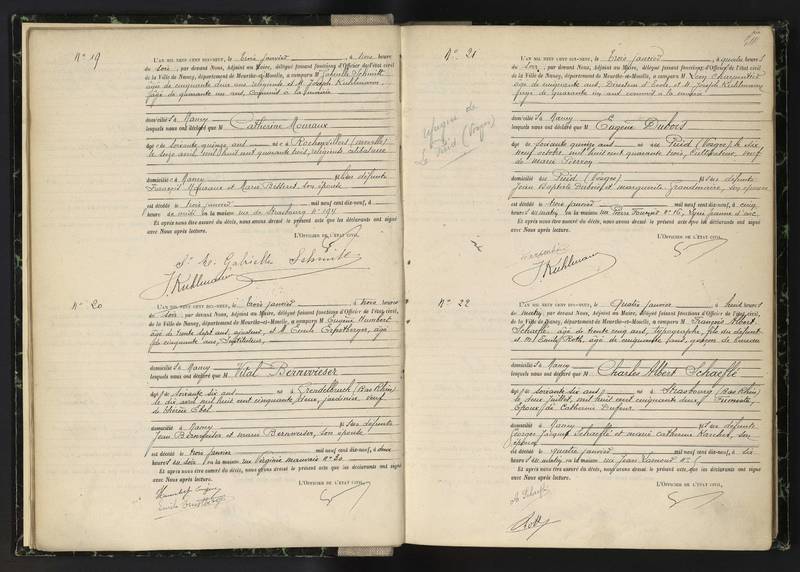 N° 19
L'AN MIL NEUF CENT DIX-NEUF, le trois janvier, à trois heures
du soir, par devant Nous, Adjoint au Maire, délégué faisant fonctions d'Officier de l'état civil
de la Ville de Nancy, département de Meurthe-et-Moselle, a comparu M Gabrielle Schmitt
âgée de cinquante deux ans, religieuse et M. Joseph Kuhlmann,
âgé de quarante un ans, commis à la mairie
domiciliés à Nancy
lesquels nous ont déclaré que M Catherine Mouraux
âgée de soixante quinze ans née à
le seize avril mil huit cent quarante trois, religieuse, célibataire
domiciliée à Nancy fille des défunts
François Mouraux et Marie son épouse
est décédée le trois janvier mil neuf cent dix-neuf, à
heure en la maison rue de Strasbourg n° 194
Et après nous être assuré du décès, nous avons dressé le présent acte que les déclarants ont signé
avec Nous après lecture.
L'OFFICIER DE L'ÉTAT CIVIL,
Sr M. Gabrielle Schmitt
J. Kuhlmann
N° 20
L'AN MIL NEUF CENT DIX-NEUF, le trois janvier, à trois heures
du soir, par devant Nous, Adjoint au Maire, délégué faisant fonctions d'Officier de l'état civil
de la Ville de Nancy, département de Meurthe-et-Moselle, a comparu M Eugène Humbert
âgé de trente sept ans, ajusteur, et M. Emile Ernstberger, âgé
de cinquante ans, Instituteur,
domiciliés à Nancy
lesquels nous ont déclaré que M Vital Bernwieser
âgé de soixante six ans né à Grendelbruch (Bas Rhin)
le dix avril mil huit cent cinquante deux, jardinier, veuf
de Thérèse Ebel
domicilié à Nancy fils des défunts
Jean Bernwieser et Marie Bernwieser, son épouse
est décédé le trois janvier mil neuf cent dix-neuf, à deux
heures du soir en la maison rue Virginie Mauvais n° 20
Et après nous être assuré du décès, nous avons dressé le présent acte que les déclarants ont signé
avec Nous après lecture.
L'OFFICIER DE L'ÉTAT CIVIL,
Humbert Eugène
Emile Ernstberger
N° 21
L'AN MIL NEUF CENT DIX-NEUF, le trois janvier, à quatre heures
du soir, par devant Nous, Adjoint au Maire, délégué faisant fonctions d'Officier de l'état civil
de la Ville de Nancy, département de Meurthe-et-Moselle, a comparu M Léon Charpentier
âgé de cinquante ans, Directeur d'Ecole et M. Joseph Kuhlmann
âgé de quarante un ans commis à la mairie
réfugié de
Le Puid (Vosges)
domiciliés à Nancy
lesquels nous ont déclaré que M Eugène Dubois
âgé de soixante quinze ans né au Puid (Vosges) le dix
neuf octobre mil huit cent quarante trois, cultivateur, veuf
de Marie
domicilié au Puid (Vosges) fils des défunts
Jean Baptiste Dubois et Marguerite Grandemaire, son épouse
est décédé le trois janvier mil neuf cent dix-neuf, à cinq
heures du matin en la maison rue Pierre Fourier n° 16, Lycée Jeanne d'Arc
Et après nous être assuré du décès, nous avons dressé le présent acte que les déclarants ont signé
avec Nous après lecture.
L'OFFICIER DE L'ÉTAT CIVIL,
J. Kuhlmann
N° 22
L'AN MIL NEUF CENT DIX-NEUF, le quatre janvier, à huit heures
du matin, par devant Nous, Adjoint au Maire, délégué faisant fonctions d'Officier de l'état civil
de la Ville de Nancy, département de Meurthe-et-Moselle, a comparu M François Albert
Schaeflé, âgé de trente cinq ans, typographe, fils du défunt
et M. Emile Roth, âgé de cinquante ans, garçon de bureau
domiciliés à Nancy
lesquels nous ont déclaré que M Charles Albert Schaeflé
âgé de soixante six ans, né à Strasbourg (Bas Rhin)
le deux Juillet, mil huit cent cinquante deux,
Epoux de Catherine Dufour
domicilié à Nancy fils des défunts
Georges Jacques Schaeflé et Marie Catherine Karcher, son
épouse
est décédé le quatre janvier mil neuf cent dix-neuf, à dix
heures du matin, en la maison rue Jean Lamour n°
Et après nous être assuré du décès, nous avons dressé le présent acte que les déclarants ont signé
avec Nous après lecture.
L'OFFICIER DE L'ÉTAT CIVIL,
A. Schaeflé
Roth